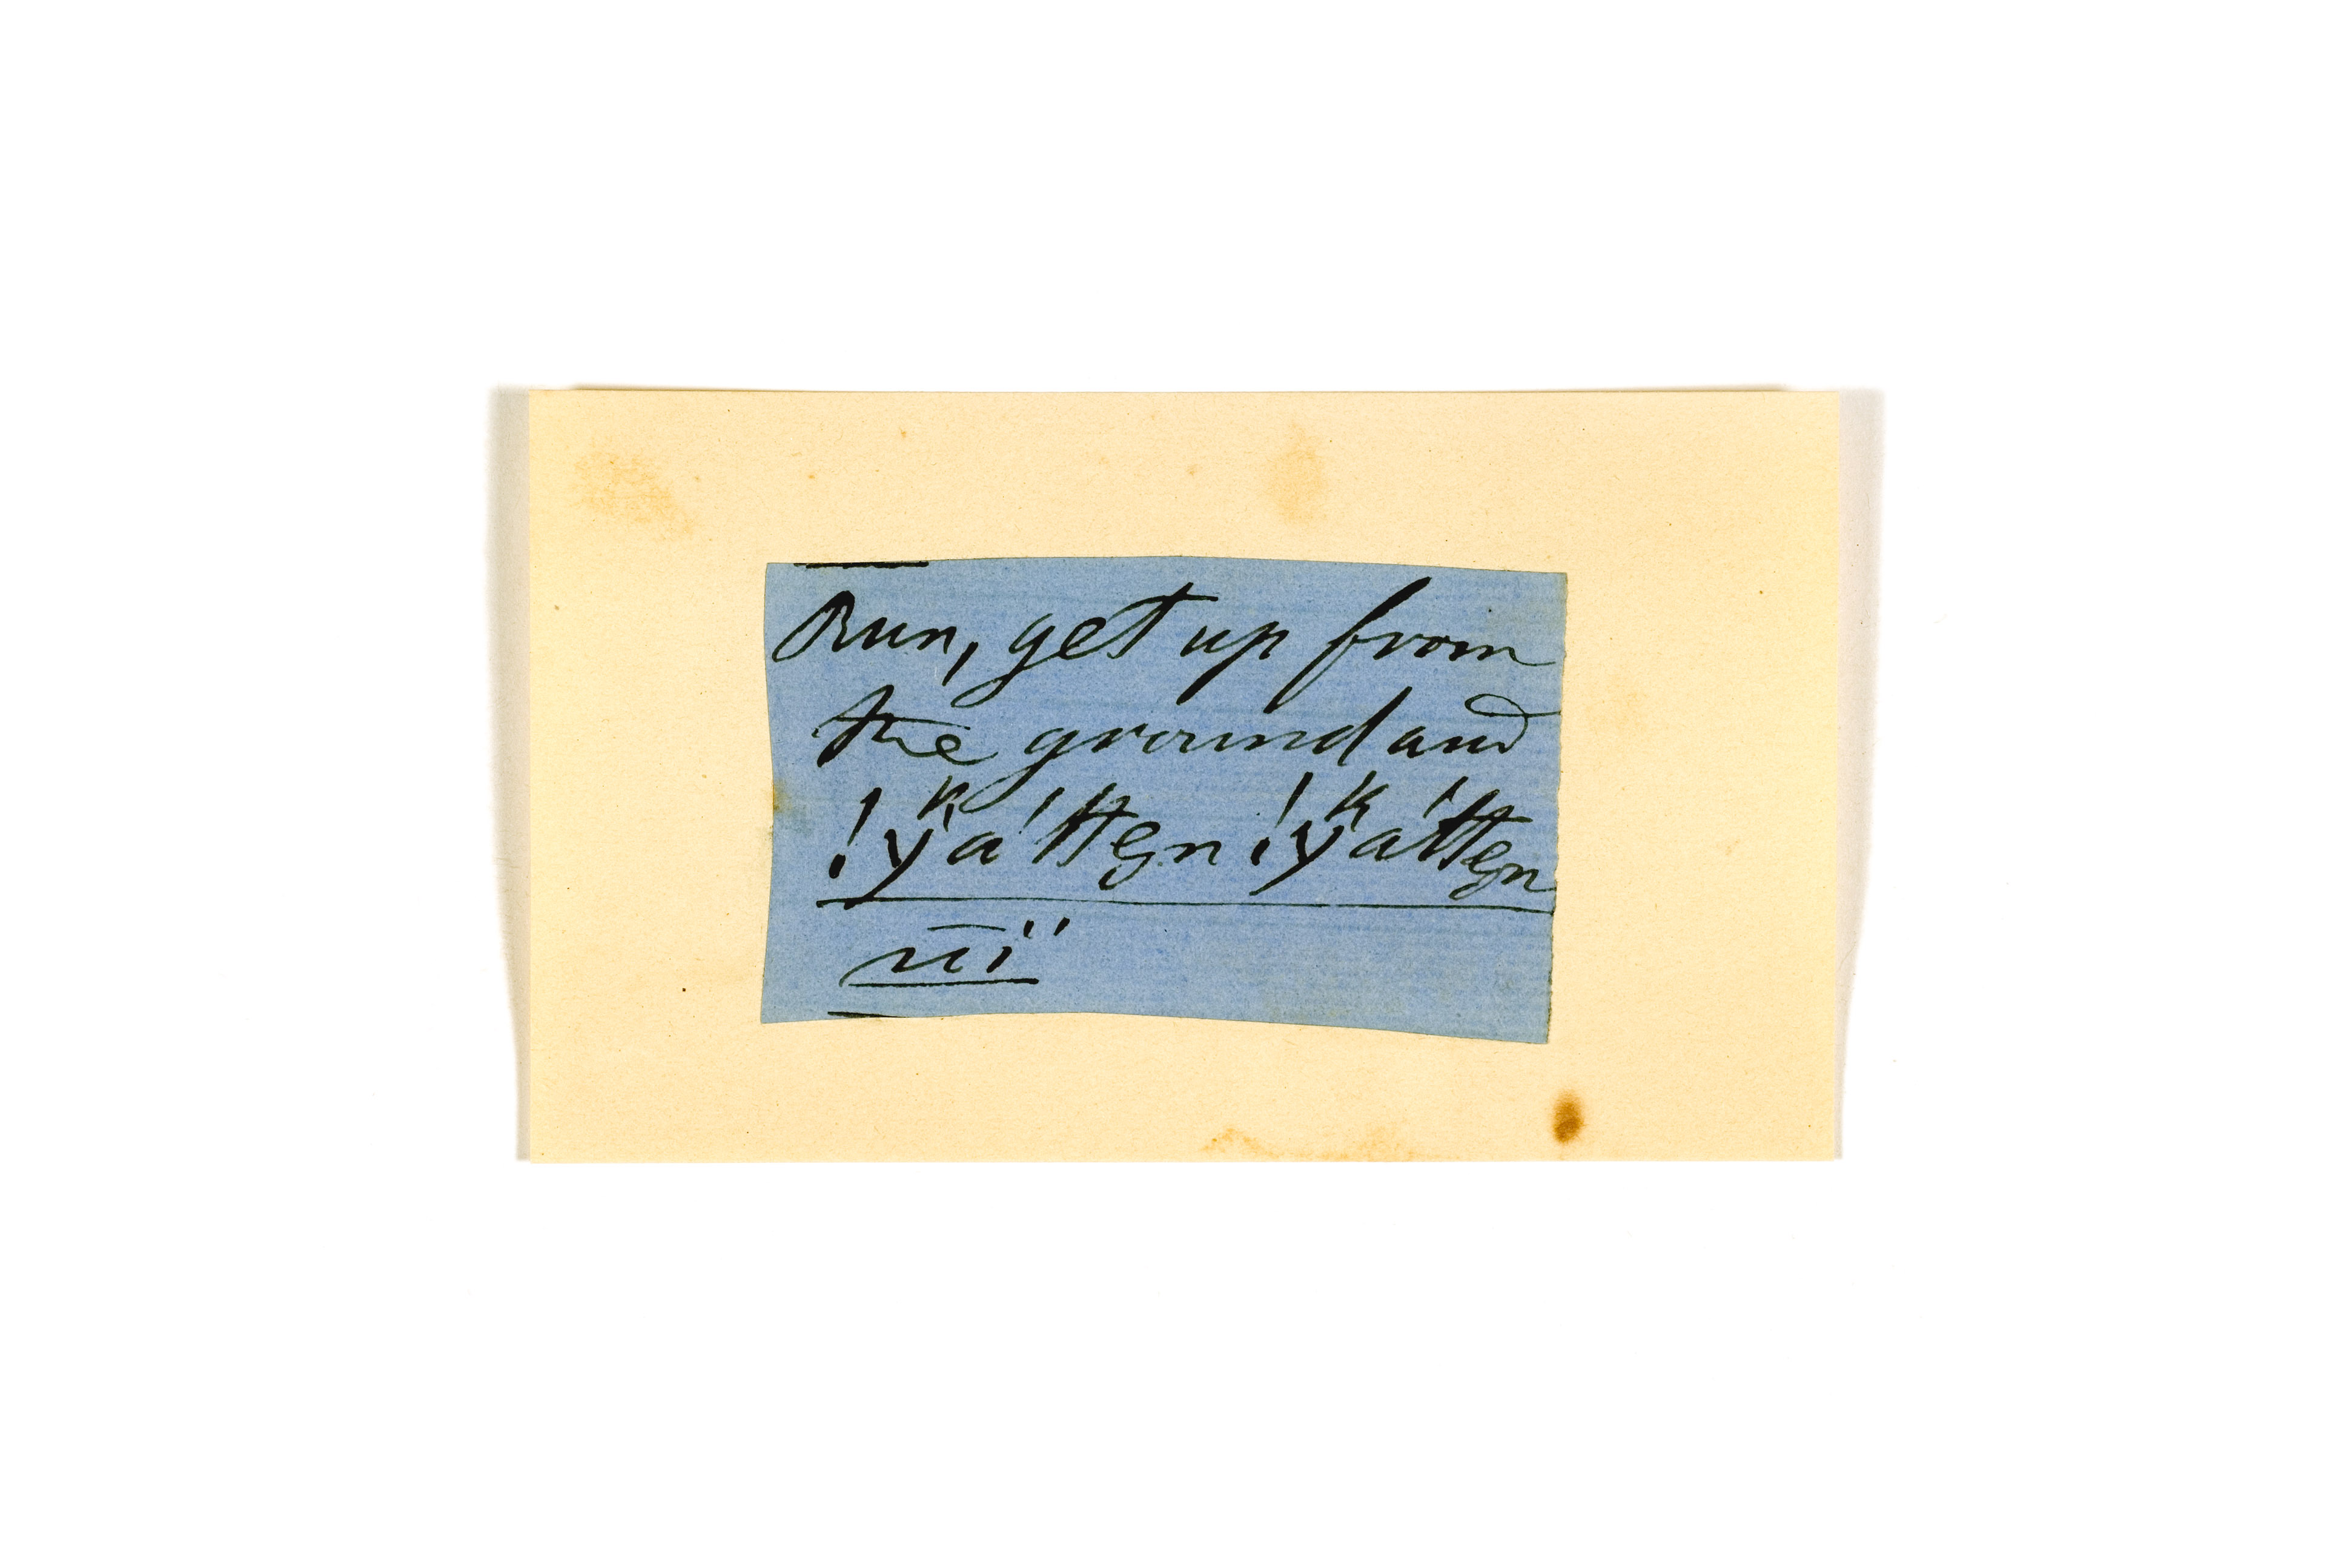 Run, get up from
the ground and
!ẙᵏa'ttęn !ẙᵏa'ttęn
u̅i''